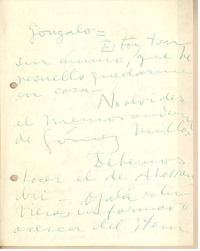 Gonzalo =
Estoy tan
sin ánimo, que he
resuelto quedarme
en casa.
No olvides
el memorandum
de Gómez Millas
Debemos
hacer el de Alessan
dri - Ojalá
informado
acerca del item